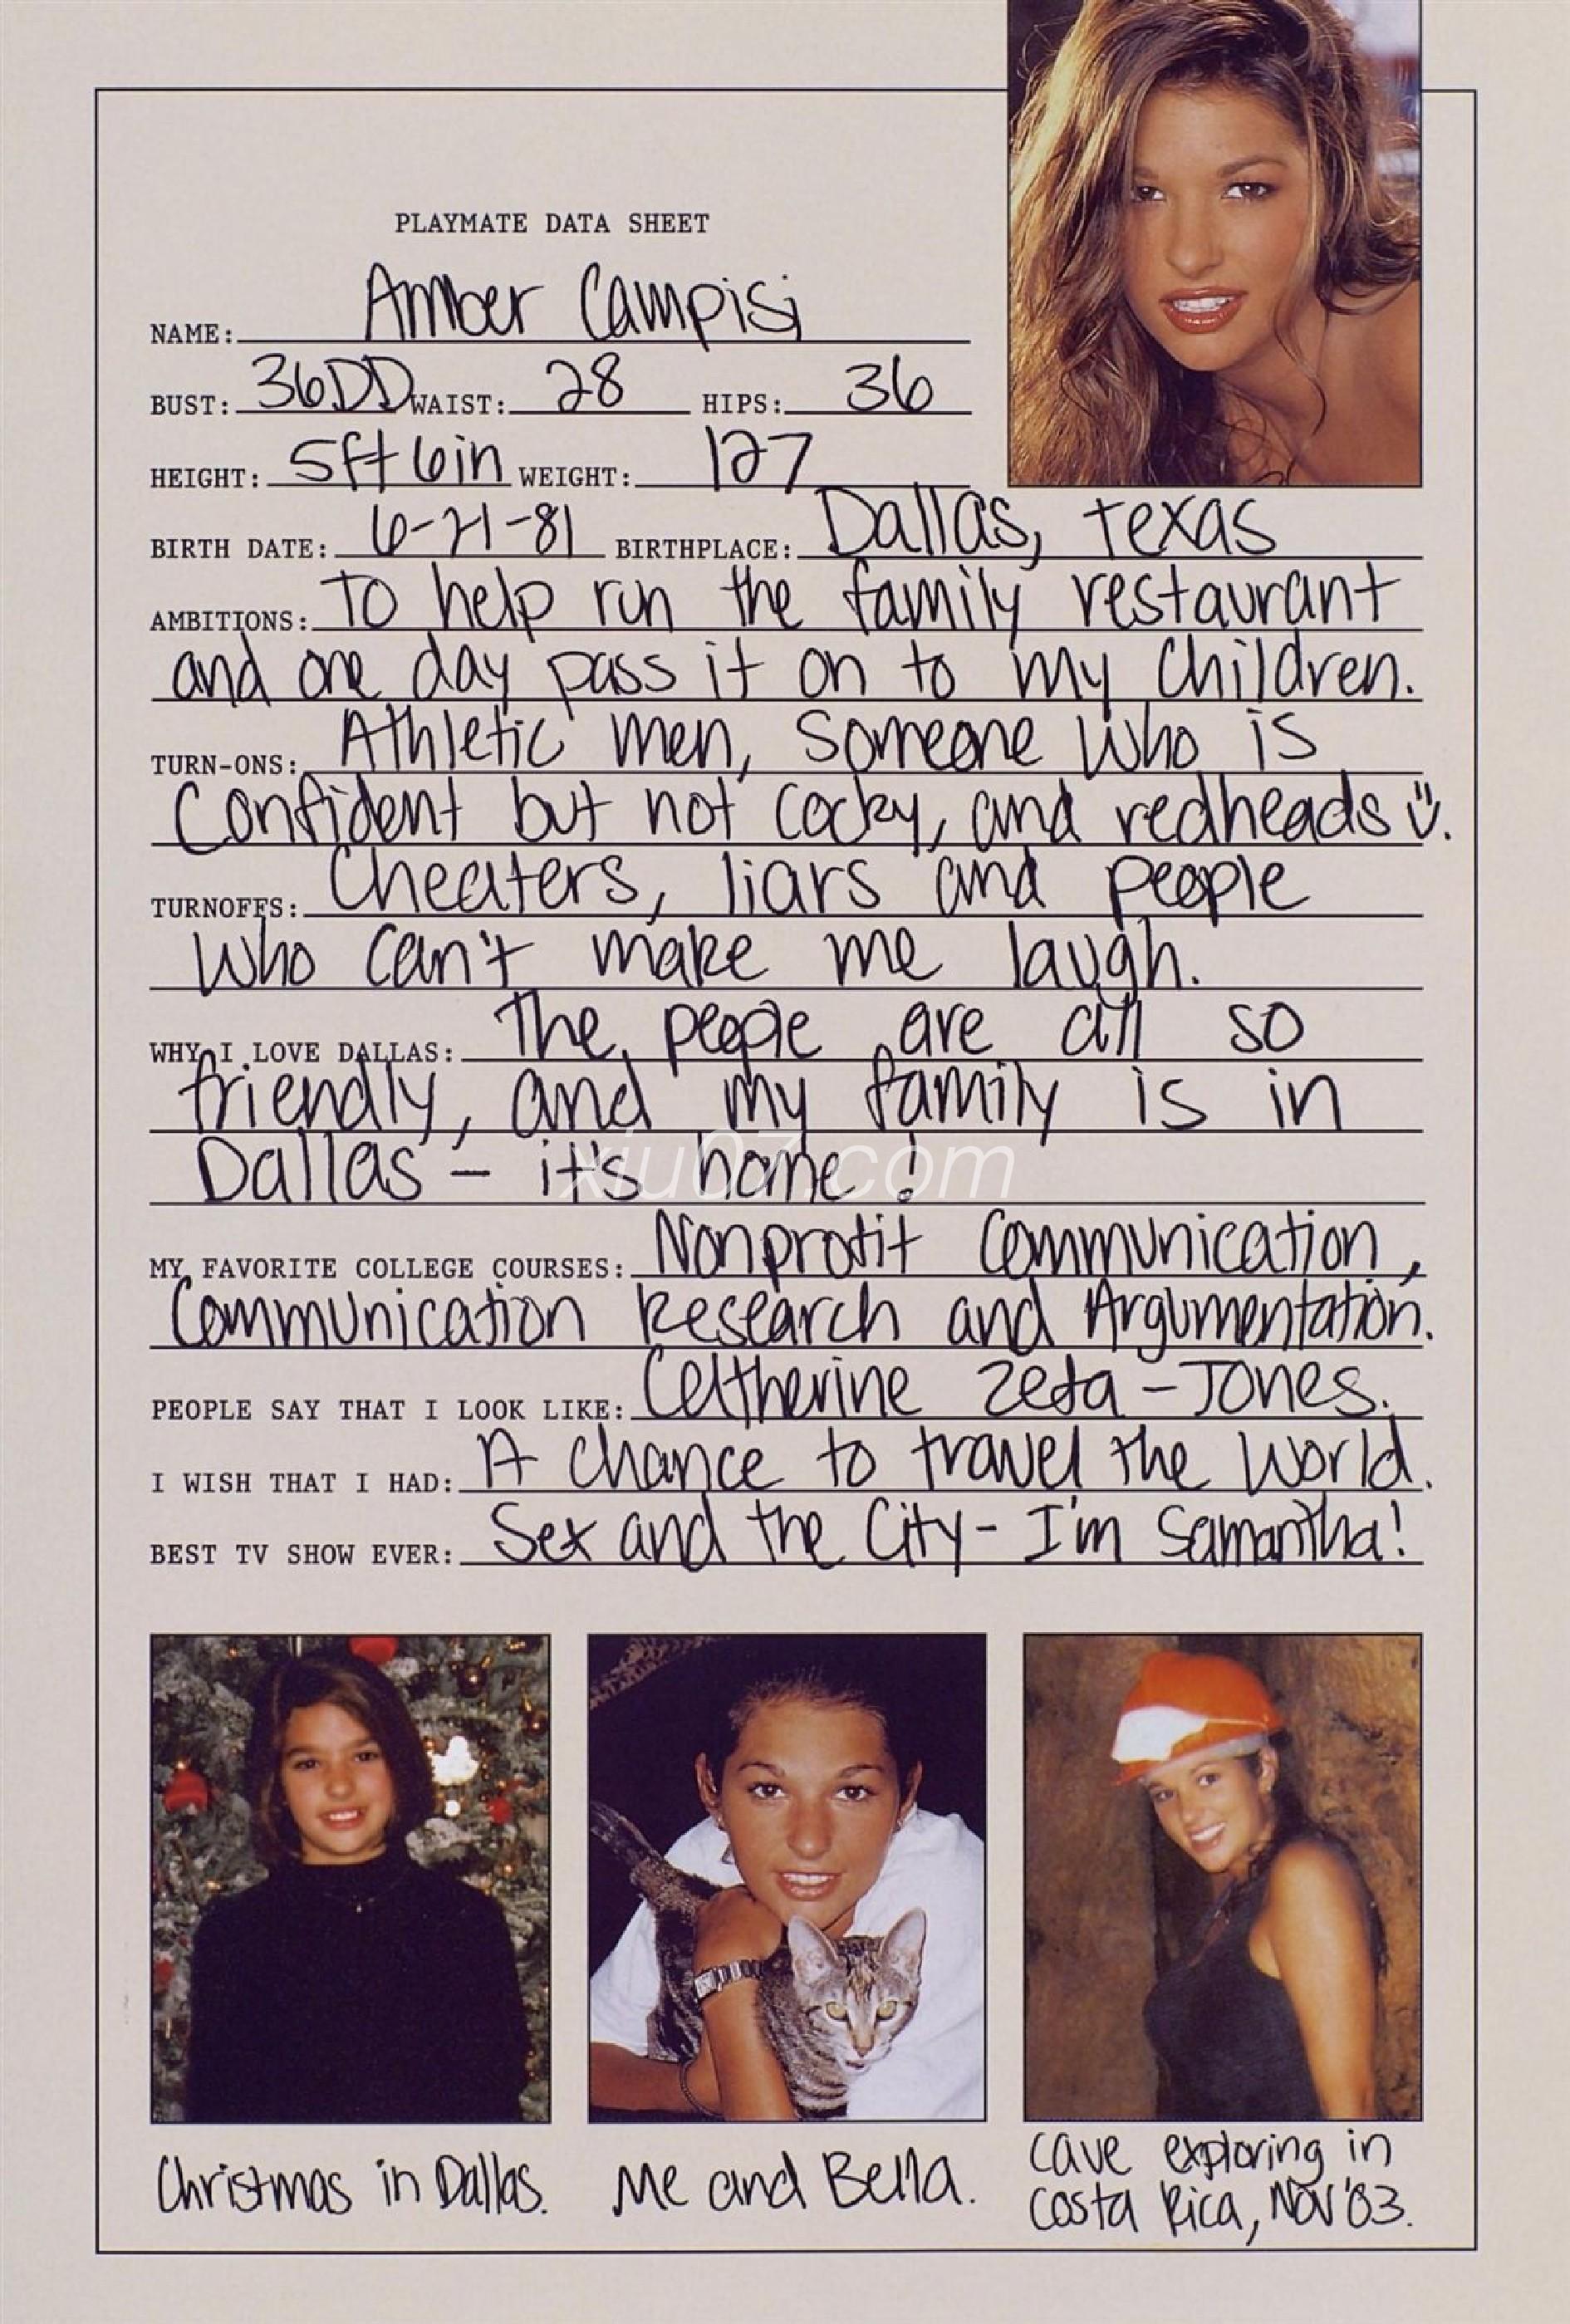 PLAYMATE DATA SHEET
NAME: Amber Campisi
BUST: 36DD WAIST: 28 HIPS: 36
HEIGHT: 5ft 6in WEIGHT: 127
BIRTH DATE: 6-21-81 BIRTHPLACE: Dallas, Texas
AMBITIONS: To help run the family restaurant
and one day pass it on to my children.
TURN-ONS: Athletic men, someone who is
confident but not cocky, and redheads ☺.
TURNOFFS: Cheaters, liars and people
who can't make me laugh.
WHY I LOVE DALLAS: The people are all so
friendly, and my family is in
Dallas - it's home!
xiu07.com
MY FAVORITE COLLEGE COURSES: Nonprofit Communication,
Communication Research and Argumentation.
PEOPLE SAY THAT I LOOK LIKE: Catherine Zeta-Jones.
I WISH THAT I HAD: A chance to travel the world.
BEST TV SHOW EVER: Sex and the City - I'm Samantha!
Christmas in Dallas.
Me and Bella.
Cave exploring in
Costa Rica, Nov '03.